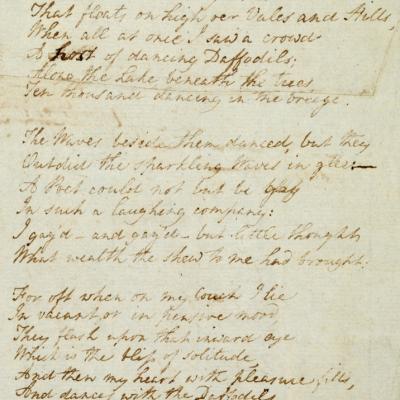 That floats on high o'er Vales and Hills,
When all at once I saw a crowd
A host of dancing Daffodils;
Along the Lake, beneath the trees,
Ten thousand dancing in the breeze.
The Waves beside them danced, but they
Outdid the sparkling Waves in glee:—
A Poet could not but be gay
In such a laughing company:
I gaz'd – and gaz'd – but little thought
What wealth the shew to me had brought:
For oft when on my couch I lie
In vacant, or in pensive mood,
They flash upon that inward eye
Which is the bliss of solitude,
And then my heart with pleasure fills,
And dances with the Daffodils